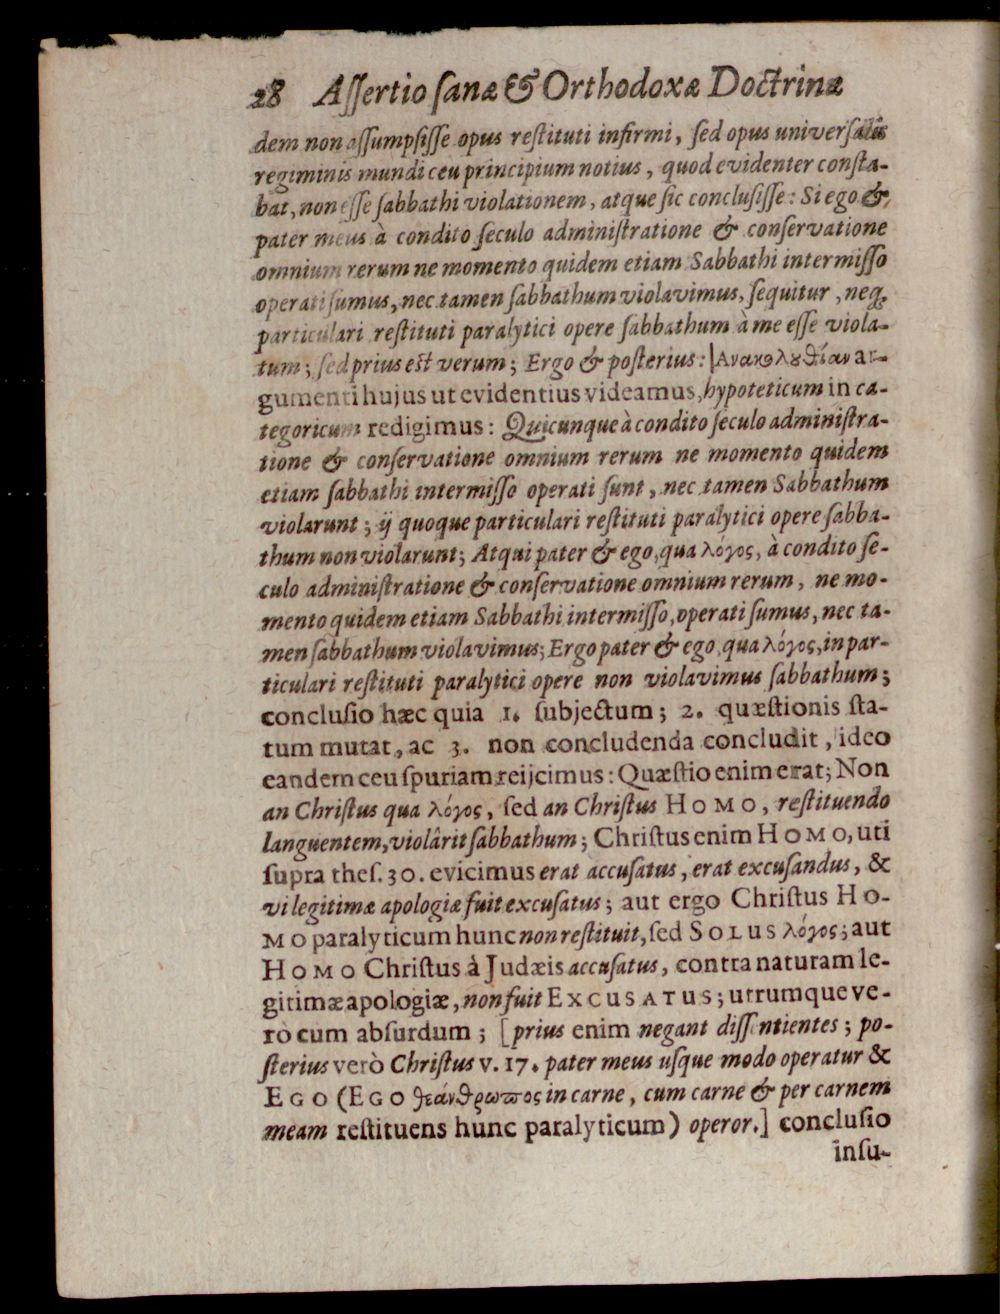 28 Aſſertio ſanæ & Orthodoxæ Doctrinæ
dem non aſſumpſiſſe opus reſtituti infirmi, ſed opus univerſalis
regiminis mundi ceu principium notius, quod evidenter conſta-
bat, non eſſe ſabbathi violationem, atque ſic concluſiſſe: Si ego &
pater meus à condito ſeculo adminiſtratione & conſervatione
omnium rerum ne momento quidem etiam Sabbathi intermiſſo
operati ſumus, nec tamen ſabbathum violavimus, ſequitur, neq;
particulari reſtituti paralytici opere ſabbathum à me eſſe viola-
tum; ſed prius est verum; Ergo & poſterius: Ανακολȣθίαν ar-
gumenti hujus ut evidentius videamus, hypoteticum in ca-
tegoricum redigimus: Quicunque à condito ſeculo adminiſtra-
tione & conſervatione omnium rerum ne momento quidem
etiam ſabbathi intermiſſo operati ſunt, nec tamen Sabbathum
violarunt; ij quoque particulari reſtituti paralytici opere ſabba-
thum non violarunt; Atqui pater & ego, qua λόγος, à condito ſe-
culo adminiſtratione & conſervatione omnium rerum, ne mo-
mento quidem etiam Sabbathi intermiſſo, operati ſumus, nec ta-
men ſabbathum violavimus; Ergo pater & ego, qua λόγος, in par-
ticulari reſtituti paralytici opere non violavimus ſabbathum;
concluſio hæc quia 1. ſubjectum; 2. quæſtionis ſta-
tum mutat, ac 3. non concludenda concludit, ideo
eandem ceu ſpuriam reijcimus: Quæſtio enim erat; Non
an Chriſtus qua λόγος, ſed an Chriſtus HOMO, reſtituendo
languentem, violârit ſabbathum; Chriſtus enim HOMO, uti
ſupra theſ. 30. evicimus erat accuſatus, erat excuſandus, &
vi legitimæ apologiæ fuit excuſatus; aut ergo Chriſtus HO-
MO paralyticum hunc non reſtituit, ſed SOLUS λόγος; aut
HOMO Chriſtus à Judæis accuſatus, contra naturam le-
gitimæ apologiæ, non fuit EXCUSATUS; utrumque ve-
rò cum abſurdum; [prius enim negant diſſentientes; po-
ſterius verò Chriſtus v. 17. pater meus uſque modo operatur &
EGO (EGO θεάνθρωπος in carne, cum carne & per carnem
meam reſtituens hunc paralyticum) operor.] concluſio
inſu-